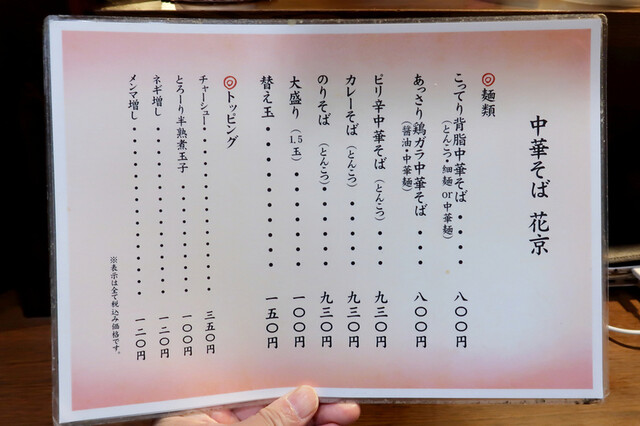 中華そば 花京
◎麺類
こってり背脂中華そば・・・・八〇〇円
（とんこつ・細麺or中華麺）
あっさり鶏ガラ中華そば・・・・八〇〇円
（醤油・中華麺）
ピリ辛中華そば（とんこつ）・・・九三〇円
カレーそば（とんこつ）・・・・・九三〇円
のりそば（とんこつ）・・・・・・九三〇円
大盛り（1.5玉）・・・・・・・・一〇〇円
替え玉・・・・・・・・・・・一五〇円
◎トッピング
チャーシュー・・・・・・・・・・・・三五〇円
とろーり半熟煮玉子・・・・・・・・・一〇〇円
ネギ増し・・・・・・・・・・・・・一二〇円
メンマ増し・・・・・・・・・・・・一二〇円
※表示は全て税込み価格です。